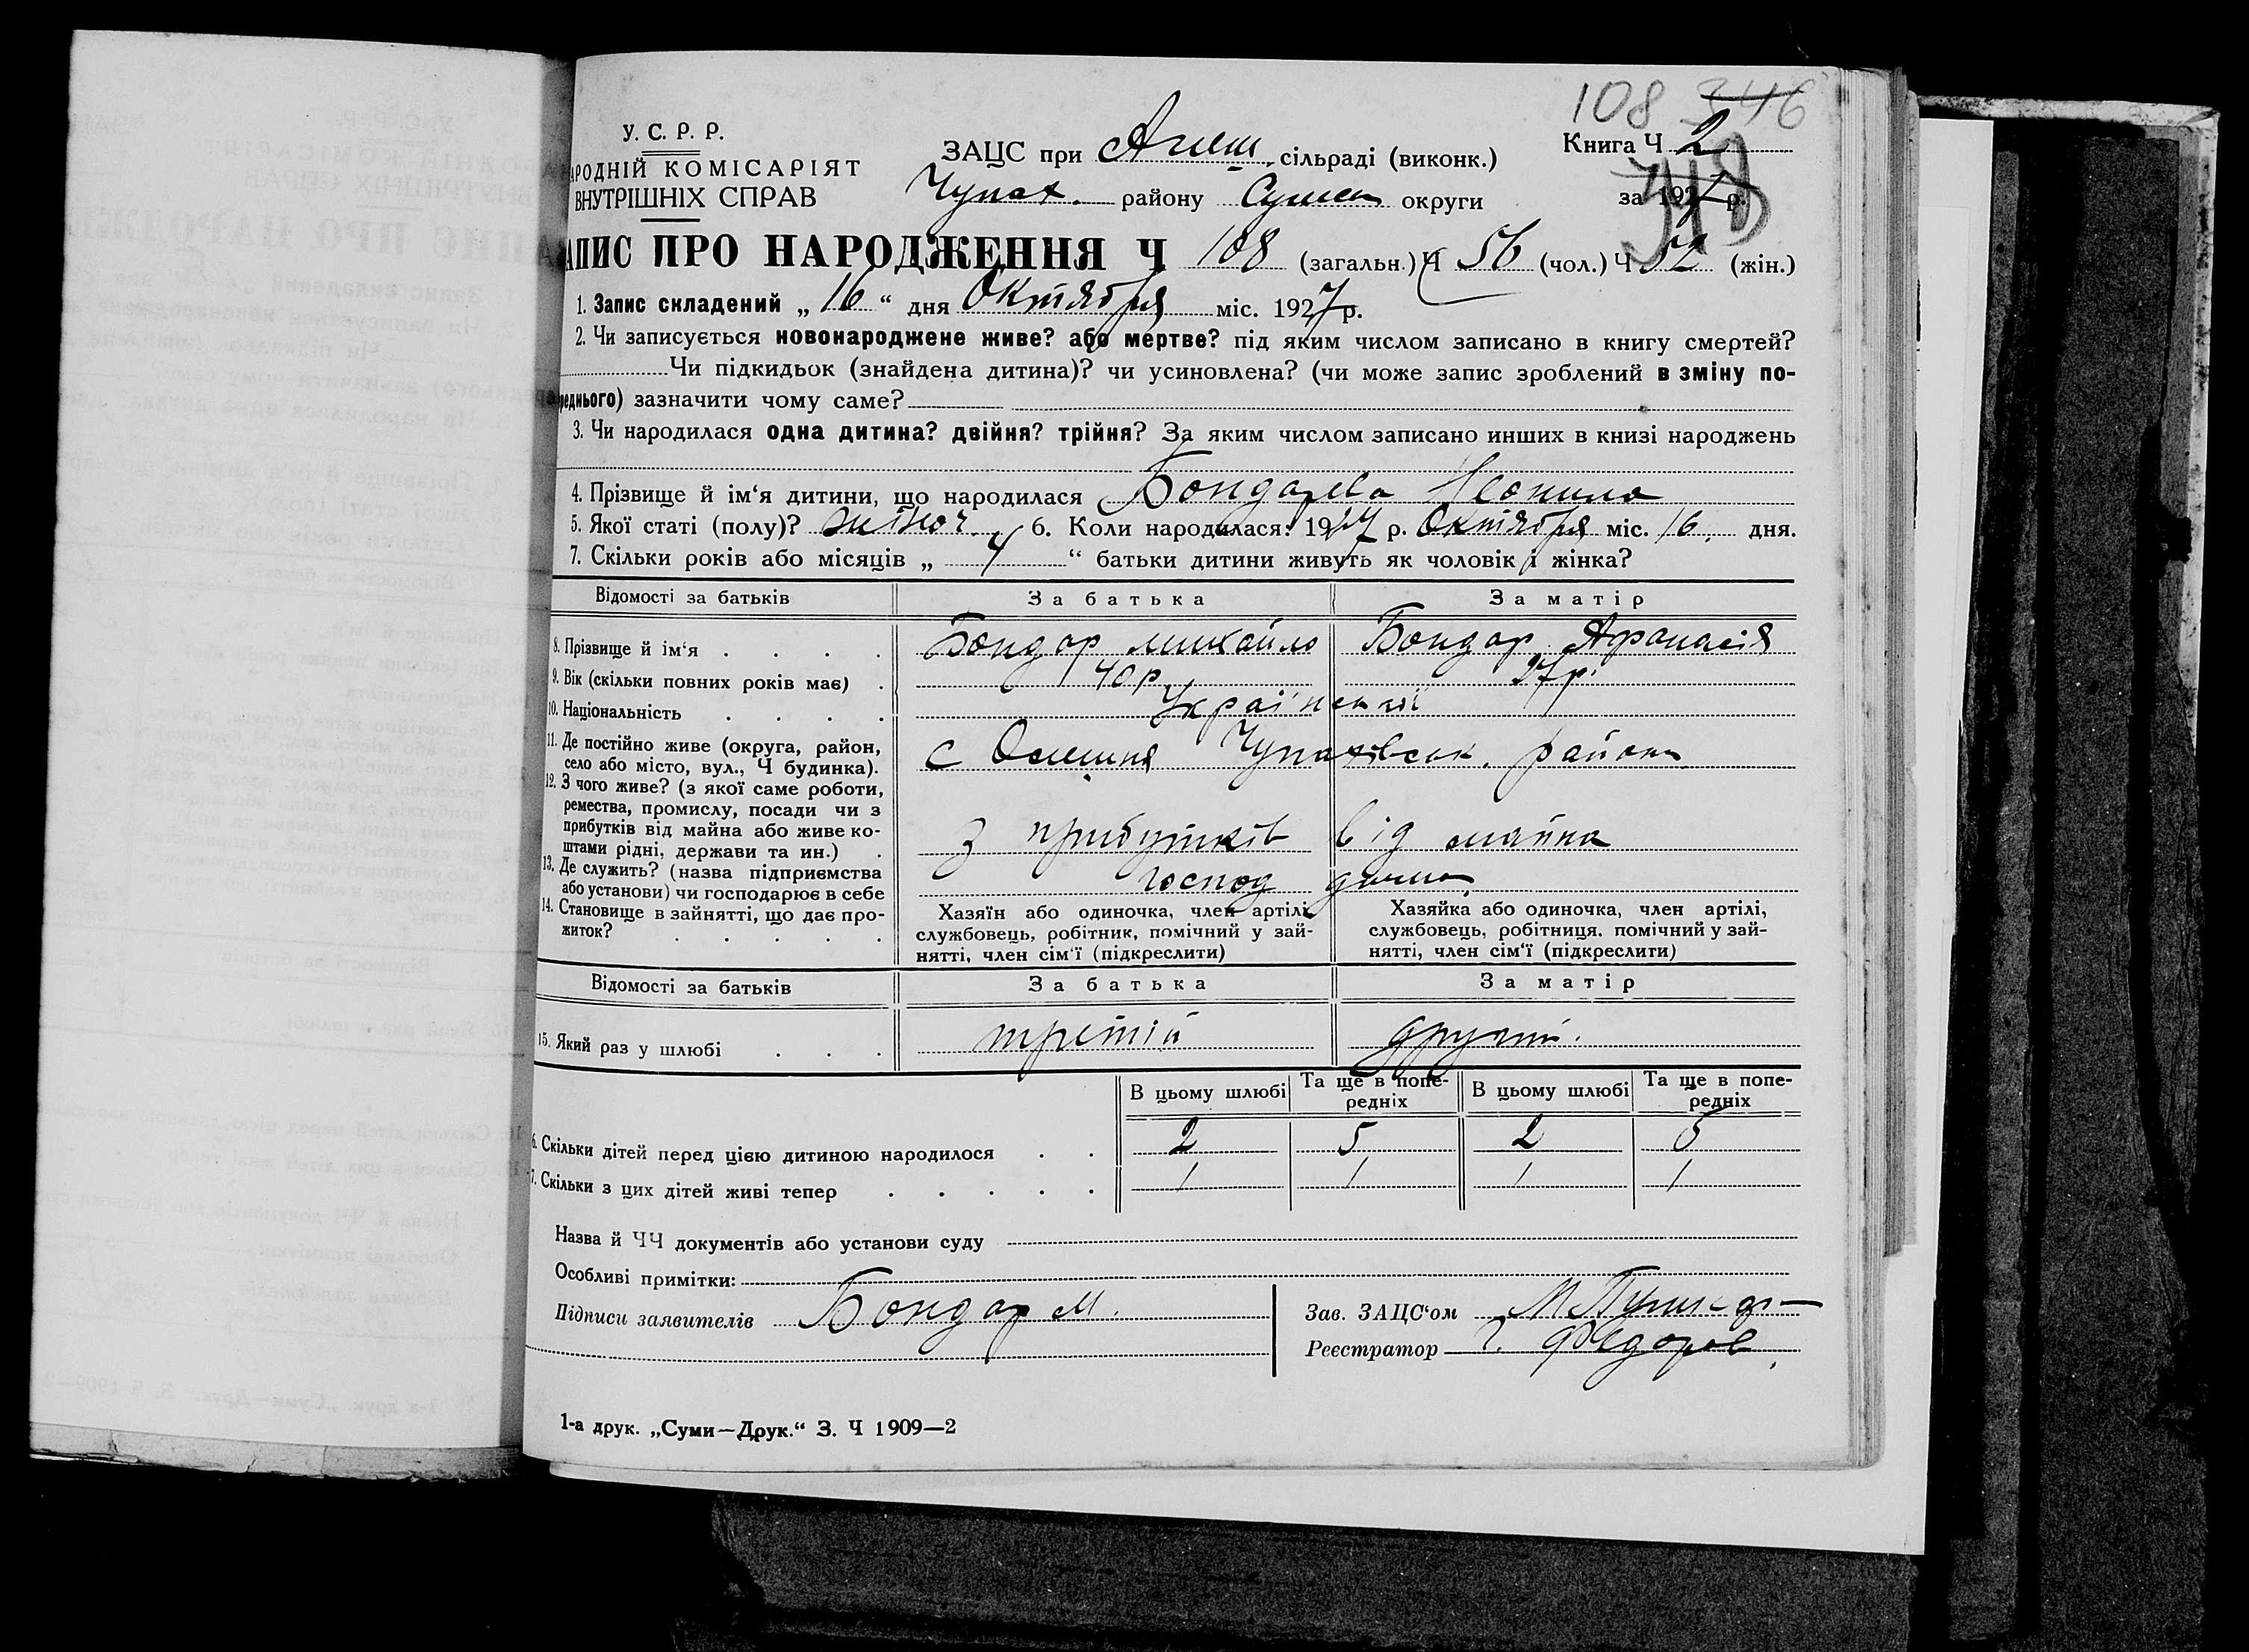 108 346
У. С. Р. Р.
НАРОДНІЙ КОМІСАРІЯТ
ВНУТРІШНІХ СПРАВ
ЗАЦС при сільраді (виконк.)
Чупах. району Сумск округи
Книга Ч 2
за 1927 р.
ЗАПИС ПРО НАРОДЖЕННЯ Ч 108 (загальн.) Ч 56 (чол.) Ч 52 (жін.)
1. Запис складений „16“ дня Октября міс. 1927 р.
2. Чи записується новонароджене живе? або мертве? під яким числом записано в книгу смертей?
Чи підкидьок (знайдена дитина)? чи усиновлена? (чи може запис зроблений в зміну по-
переднього) зазначити чому саме?
3. Чи народилася одна дитина? двійня? трійня? За яким числом записано инших в книзі народжень
4. Прізвище й ім‘я дитини, що народилася Бондарева Неонила
5. Якої статі (полу)? жіноч. 6. Коли народилася: 1927 р. Октября міс. 16. дня.
7. Скільки років або місяців „ 4 “ батьки дитини живуть як чоловік і жінка?
Відомості за батьків За батька За матір
8. Прізвище й ім‘я . . . . Бондар михайло Бондар Афанасія
9. Вік (скільки повних років має) . 40 р 37р.
10. Національність . . . . Українській
11. Де постійно живе (округа, район,
село або місто, вул., Ч будинка). с Олешня Чупахівськ. района
12. З чого живе? (з якої саме роботи,
ремества, промислу, посади чи з
прибутків від майна або живе ко-
штами рідні, держави та ин.) . З прибутків від майна
13. Де служить? (назва підприємства
або установи) чи господарює в себе господ дома
14. Становище в зайнятті, що дає про-
житок? . . . . .
Хазяїн або одиночка, член артілі,
службовець, робітник, помічний у зай-
нятті, член сім‘ї (підкреслити)
Хазяйка або одиночка, член артілі,
службовець, робітниця, помічний у зай-
нятті, член сім‘ї (підкреслити)
Відомості за батьків За батька За матір
15. Який раз у шлюбі . . . третій другий.
В цьому шлюбі Та ще в попе-редніх В цьому шлюбі Та ще в попе-редніх
16. Скільки дітей перед цією дитиною народилося . . 2 5 2 5
17. Скільки з цих дітей живі тепер . . . . . 1 1 1 1
Назва й ЧЧ документів або установи суду
Особливі примітки:
Підписи заявителів Бондар М.
Зав. ЗАЦС‘ом
Реєстратор Г. Федоров
1-а друк. „Суми—Друк.“ З. Ч 1909—2